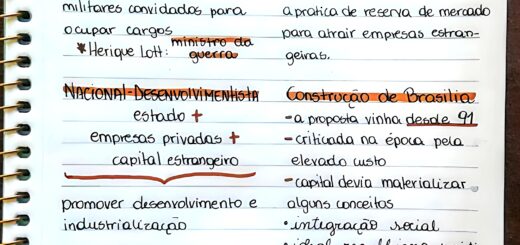 militares convidados para
ocupar cargos
* Herique Lott: ministro da
guerra
NACIONAL-DESENVOLVIMENTISTA
estado +
empresas privadas +
capital estrangeiro
promover desenvolvimento e
industrialização
a pratica de reserva de mercado
para atrair empresas estran-
geiras.
Construção de Brasilia
- a proposta vinha desde 91
- criticada na época pelo
elevado custo
- capital devia materializar
alguns conceitos
• integração social